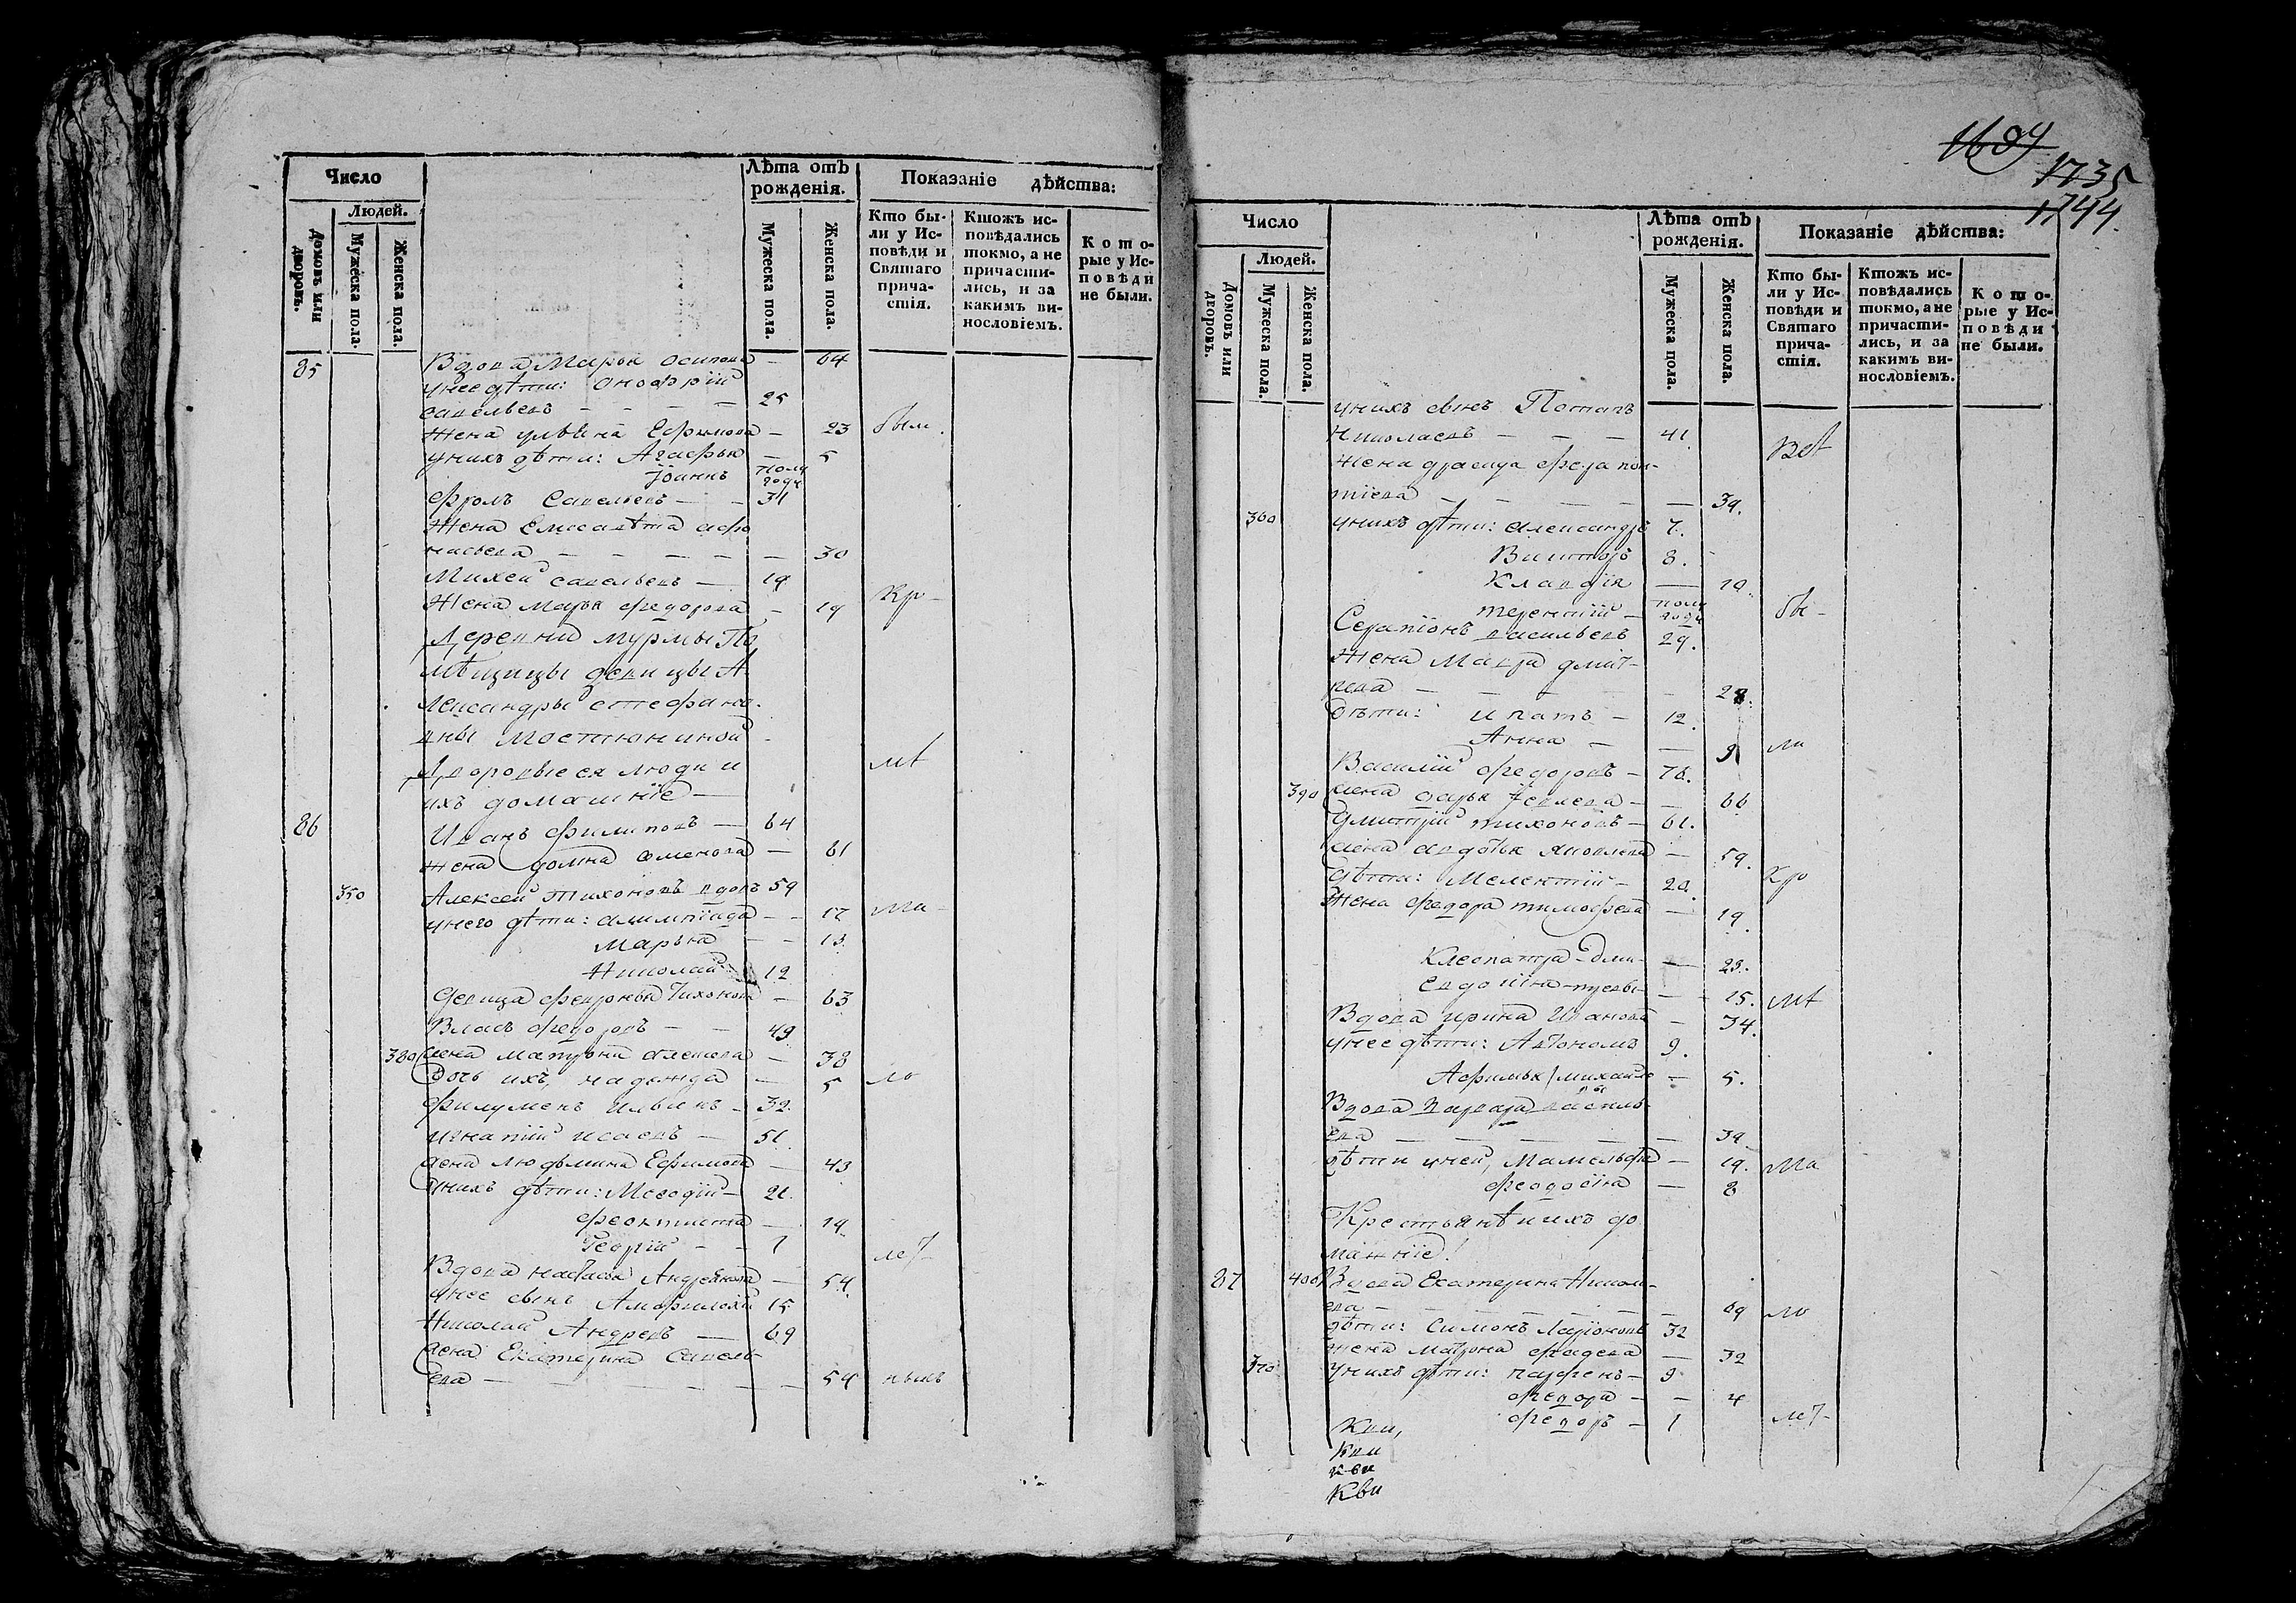 Число
Лѣта отъ рожденія.
Показаніе дѣйства:
Людей.
Домовъ или дворовъ.
Мужеска пола.
Женска пола.
Мужеска пола.
Женска пола.
Кто бы-
ли у Ис-
повѣди и
Святаго
прича-
стія.
Ктожъ ис-
повѣдались
токмо, а не
причасти-
лись, и за
какимъ ви-
нословіемъ.
Кото-
рые у Ис-
повѣди
не были.
85 Вдова Марья Осипова — 64
унее дѣти: Онофрій
савельевъ — — — — 25
Жена Ефимова — 23 были.
унихъ дѣти: Агафья — 5
Іоаннъ полу года
Фролъ Савельевъ — — 31
Жена Елисавѣта афо
насьева — — — — — 30
Михей савельевъ — 19
Жена Марья федорова — 19 Кр-
Деревни Мурмы По
мѣщицы девицы А
лександры стефано
вны Мостюниной
Дворовыеся люди и мѣ
ихъ домашніе —
86 Иванъ Филиповъ — 64
жена Домна семенова — 61
350 Алексей Тихоновъ вдовъ 59
унего дѣти: алимпіада — — 17 Ма-
Марьна — — 13
Николай 12
Девица февронья Тихонова — 63
Власъ федоровъ — — 49
380 жена матрона — 38
Дочь ихъ, надежда — 5 ло
Филуменъ ильинъ — 32.
игнатій исаевъ — 51.
жена людьмина Ефимова — 43
унихъ дѣти: Мефодій — 21.
феоктиста — 19
Георгій — — 1
ле7-
Вдова — 54
унее сынъ 15
Николай Андревъ — 69
жена Екатерина Савель
ева — — — — — — 54 ныхъ
1694
1735
1744.
Число
Лѣта отъ рожденія.
Показаніе дѣйства:
Людей.
Домовъ или дворовъ.
Мужеска пола.
Женска пола.
Мужеска пола.
Женска пола.
Кто бы-
ли у Ис-
повѣди и
Святаго
прича-
стія.
Ктожъ ис-
повѣдались
токмо, а не
причасти-
лись, и за
какимъ ви-
нословіемъ.
Кото-
рые у Ис-
повѣди
не были.
унихъ сынъ Потапъ
Николаевъ — — — 41
Всѣ
жена
— — — — — 39.
360 унихъ дѣти: александръ 7.
Викторъ 8.
Клавдія — 10.
терентій — полу года бы-
Серапіонъ васильевъ 29.
Жена Мавра дмит-
рева — — — — 28.
дѣти: ипатъ — 12.
Анна — — 9 ли
Василій федоровъ — 78.
390 жена дарья — — 66
Дмитрій тихоновъ — 61.
жена авдотья яковлева — 59.
Дѣти: Мелентій — 20. Кр
Жена федора тимофева — 19.
Клеопатра — 23.
Евдокіна — — 15. мѣ
Вдова ирина Иванова — 34.
унее дѣти: Автономъ 9.
Афимья / михайло
вы — 5.
Вдова варвара василь-
ева — — — — — 39
дѣти уней, Мамельфа — 19. Ма
феодосіна — 8
Крестьянѣ и ихъ до
машніе!
87 400 Вдова Екатерина Никола-
ева — — — — — — 69 ло
дѣти: Симонъ Ларіоновъ 32
жена матрона фадева — 32
370 унихъ дѣти: парфенъ — 9
федора — — 4
федоръ — 1 ле7-
Кви,
Кви
кви
Кви